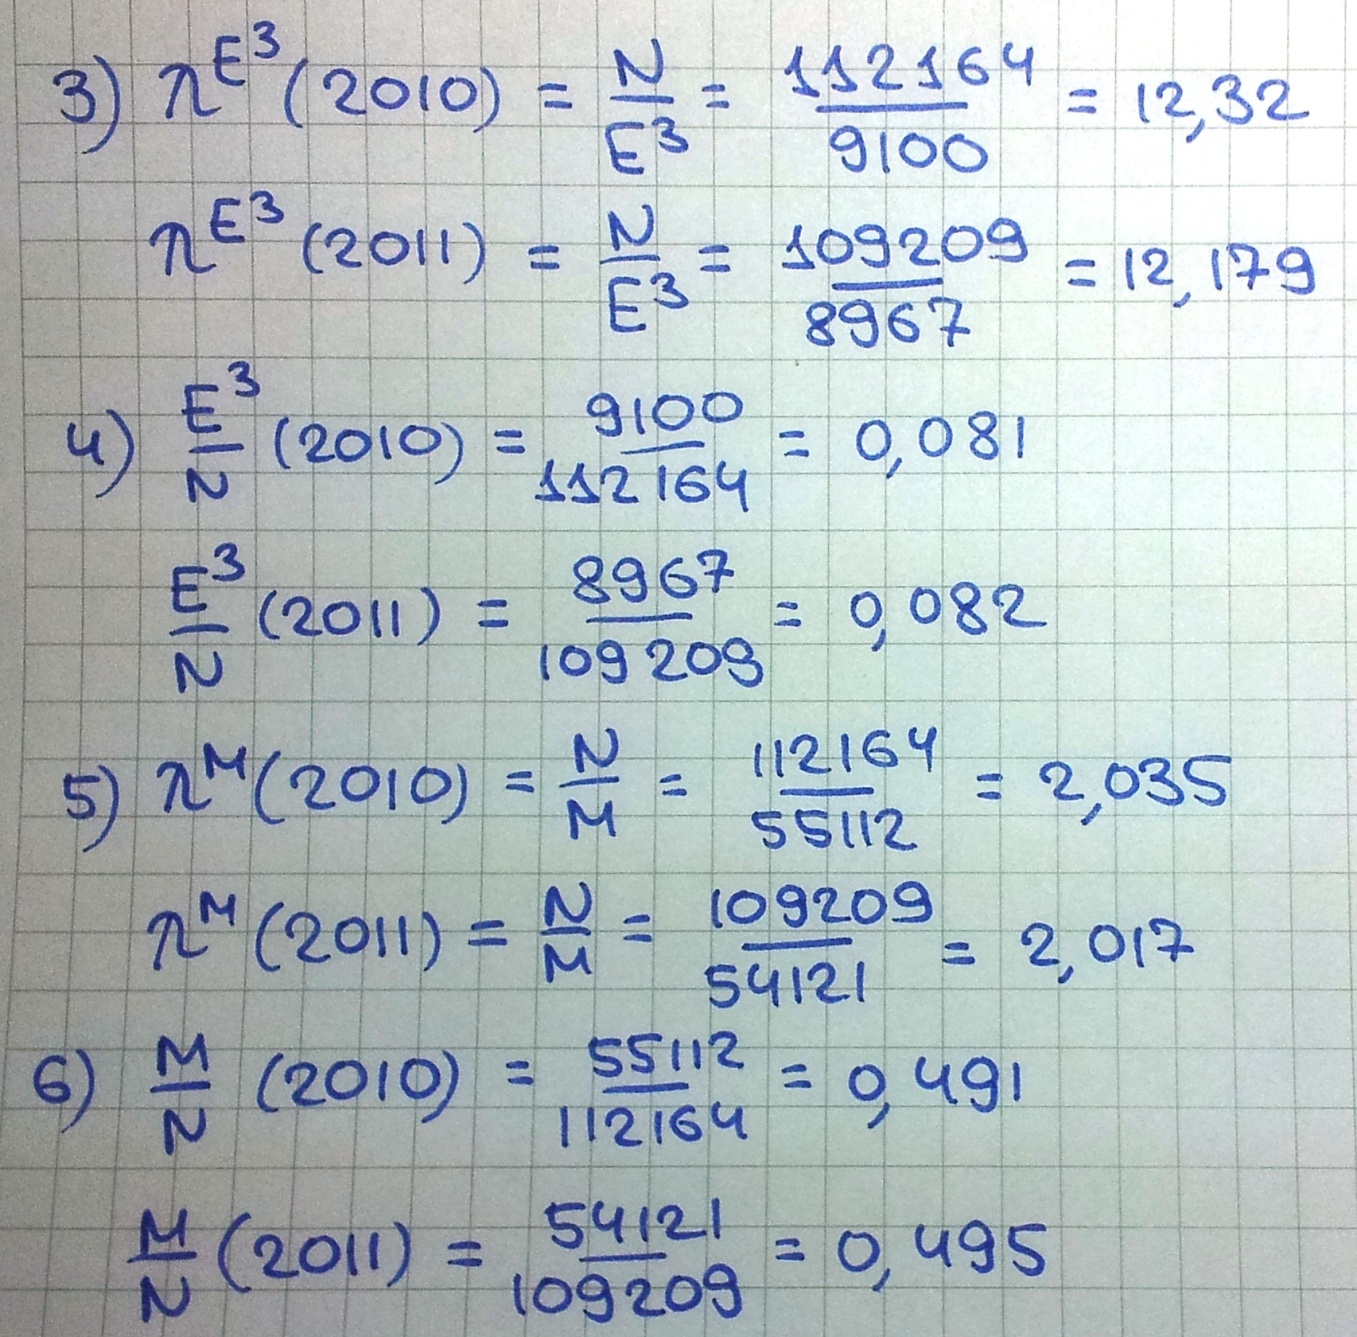 3) π^E³ (2010) = N/E³ = 112164/9100 = 12,32
π^E³ (2011) = N/E³ = 109209/8967 = 12,179
4) E³/N (2010) = 9100/112164 = 0,081
E³/N (2011) = 8967/109209 = 0,082
5) π^M (2010) = N/M = 112164/55112 = 2,035
π^M (2011) = N/M = 109209/54121 = 2,017
6) M/N (2010) = 55112/112164 = 0,491
M/N (2011) = 54121/109209 = 0,495